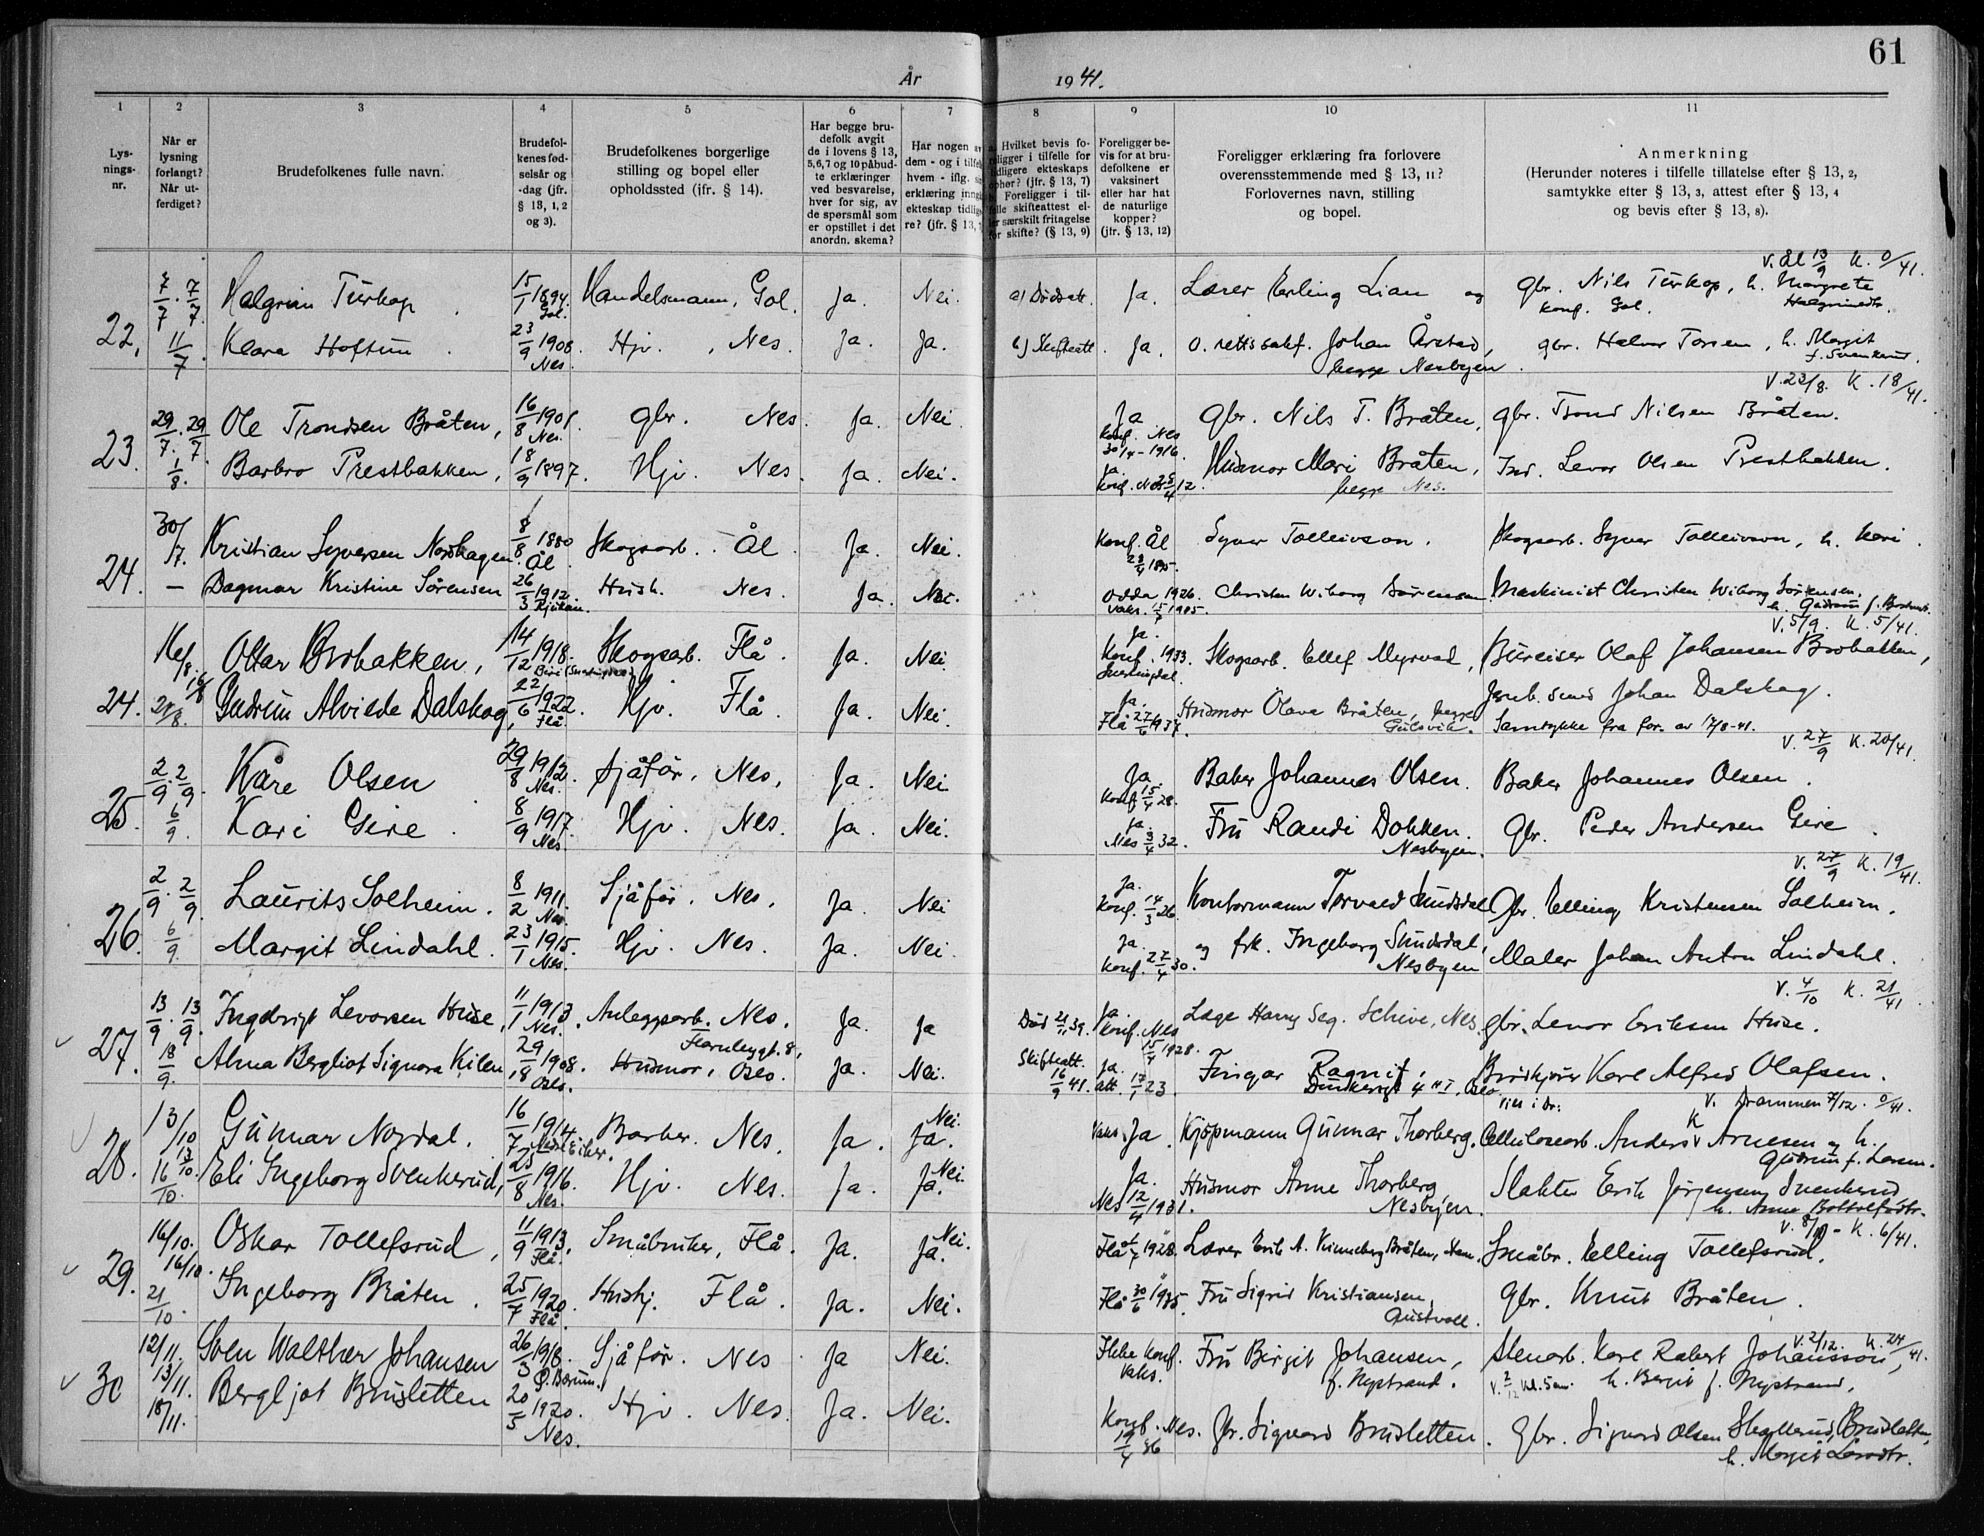 61
År 1941.
1 2 3 4 5 6 7 8 9 10 11
Lys-
nings-
nr.
Når er
lysning
forlangt?
Når ut-
ferdiget?
Brudefolkenes fulle navn.
Brudefol-
kenes fød-
selsår og
-dag (jfr.
§ 13, 1, 2
og 3).
Brudefolkenes borgerlige
stilling og bopel eller
opholdssted (jfr. § 14).
Har begge bru-
defolk avgit
de i lovens § 13,
5, 6, 7 og 10 påbud-
te erklæringer
ved besvarelse,
hver for sig, av
de spørsmål som
er opstillet i det
anordn. skema?
Har nogen av
dem - og i tilfelle
hvem - iflg.
erklæring inngåt
ekteskap tidlige-
re? (jfr. § 13,
Hvilket bevis fo-
religger i tilfelle for
tidligere ekteskaps
ophør? (jfr. § 13, 7)
Foreligger i til-
felle skifteattest el-
ler særskilt fritagelse
for skifte? (§ 13, 9)
Foreligger be-
vis for at bru-
defolkene er
vaksinert
eller har hat
de naturlige
kopper?
(jfr. § 13, 12)
Foreligger erklæring fra forlovere
overensstemmende med § 13, 11?
Forlovernes navn, stilling
og bopel.
Anmerkning
(Herunder noteres i tilfelle tillatelse efter § 13, 2,
samtykke efter § 13, 3, attest efter § 13, 4
og bevis efter § 13, 8).
V. Ål 13/9 K. 0/41.
22. 7/7. 7/7. Halgrim Turkop 15/1 1894. Gol. Handelsmann, Gol. Ja. Nei. a) Dødsatt. Ja. Lærer Erling Lian og Gbr. Nils Turkop, h. Margrete
Konf. Gol. Halgrimsdtr.
11/7 Klara Hoftun 23/9 1908. Nes. Hjv., Nes. Ja. Ja. b) Skifteatt. Ja. o. rettssakf. Johan Årstad, gbr. Halvor Torsen, h. Margit
begge Nesbyen. f. Svenkerud.
V. 23/8. K. 18/41.
23. 29/7. 29/7. Ole Trondsen Bråten, 16/8 1901. Nes. Gbr. Nes. Ja. Nei. Ja Konf. Nes 30/4-1916. Gbr. Nils T. Bråten, gbr. Trond Nilsen Bråten.
1/8. Barbro Prestbakken, 18/9 1897. Hjv. Nes. Ja. Nei. Ja. Konf. Nes 25/4 12. Husmor Mari Bråten, Ind. Levor Olsen Prestbakken.
begge Nes.
24. 30/7. Kristian Syversen Nordhagen. 8/8 1880 Ål. Skogsarb. Ål. Ja. Nei. Konf. Ål 28/4 1895. Syver Tolleivson. Skogsarb. Syver Tolleivson, h. Kari.
— Dagmar Kristine Sørensen 26/3 1912. Rjukan. Hush. Nes. Ja. Nei. Odda 1926. Christen Wiborg Sørensen. Maskinist Christen Wiborg Sørensen.
V. 5/9. K. 5/41.
24. 16/8. 16/8 Ottar Brobakken, 14/12 1918. Skogsarb. Flå. Ja. Nei. Ja. Konf. 1933. Snertingdal. Skogsarb. Ellef Myrvod, Bureiser Olaf Johansen Brobakken,
Gudrun Alvilde Dalskog, 22/6 1922. Flå. Hjv. Flå. Ja. Nei. Ja. Flå 27/6 1937. Husmor Olava Bråten, begge Jernb. smed Johan Dalskog.
Gulsvik. Samtykke fra for. av 17/8-41.
V. 27/9 K. 20/41.
25. 2/9. 2/9. Kåre Olsen 29/8 1912. Nes. Sjåfør. Nes. Ja. Nei. Ja Konf. 15/4 28. Baker Johannes Olsen. Baker Johannes Olsen.
6/9. Kari Geire. 8/9 1917. Nes. Hjv. Nes. Ja. Nei. Ja. Nes 3/4 32. Fru Randi Dokken. Gbr. Peder Andersen Geire.
Nesbyen.
V. 27/9 K. 19/41.
26. 2/9. 2/9. Laurits Solheim. 8/2 1911. Nes. Sjåfør. Nes. Ja. Nei Ja. Konf. 14/3 26. Kontormann Torvald Sundsdal Gbr. Elling Kristensen Solheim.
6/9. Margit Lindahl. 23/1 1915. Nes. Hjv. Nes. Ja. Nei. Ja. Konf. 27/4 30. og frk. Ingeborg Sundsdal, Maler Johan Anton Lindahl.
Nesbyen
V. 4/10 K. 21/41
27. 13/9. 13/9. Ingebrigt Levorsen Huse, 11/1 1913. Nes. Anleggsarb. Nes. Ja. Ja Død 21/1 39. Ja. Konf. Nes 15/4 1928. Læge Harry Seg. Schive, Nes. Gbr. Levor Eriksen Huse.
18/9. Alma Bergliot Signora Kilen 29/8 1908. Oslo. Husmor, Oslo. Ja. Nei. Skifteatt. 16/9 41. Ja. att. 17/1 23. Fingar Ragnit, Karl Alfred Olafsen.
V. Drammen 7/12. 0/41.
28. 13/10 Gunnar Nordal. 16/7 1914. Nedre Eiker. Barber. Nes. Ja. Ja. Nei. Vaks. Ja. Kjøpmann Gunnar Thorberg. Cellulosearb. Anders K Arnesen og h.
Gudrun f. Larsen.
16/10. Eli Ingeborg Svenkerud, 25/8 1916. Nes. Hjv. Nes. Ja. Ja. Nei. Ja. Nes 12/4 1931. Husmor Anne Thorberg Slakter Erik Jørgensen Svenkerud
Nesbyen. h. Anne Bottolfsdtr.
V. 8/11 - K. 6/41.
29. 16/10. 16/10. Oskar Tollefsrud, 11/9 1913. Flå. Småbruker, Flå. Ja. Ja. Nei. Flå 1928. Lærer Erik A. Kinneberg Bråten, Småbr. Elling Tollefsrud.
21/10. Ingeborg Bråten. 25/7 1920. Flå. Hushj. Flå. Ja. Nei. Flå 30/6 1935. Fru Sigrid Kristiansen, Gbr. Knut Bråten.
Gustvoll.
V. 2/12. K. 24/41.
30 12/11. 13/11. Sven Walther Johansen 26/3 1918. Ø. Bærum. Sjåfør. Nes Ja Nei. Ikke konf. Vaks. Fru Birgit Johansen, Stenarb. Karl Robert Johansson,
f. Nystrand. h. Bergit f. Nystrand,
18/11. Bergljot Brusletten 20/5 1920. Nes. Hjv. Nes. Ja. Nei. Konf. Nes. 19/4 36 Gbr. Sigvard Brusletten. Gbr. Sigvard Olsen Skallerud, Brusletten,
h. Margit Larsdtr.